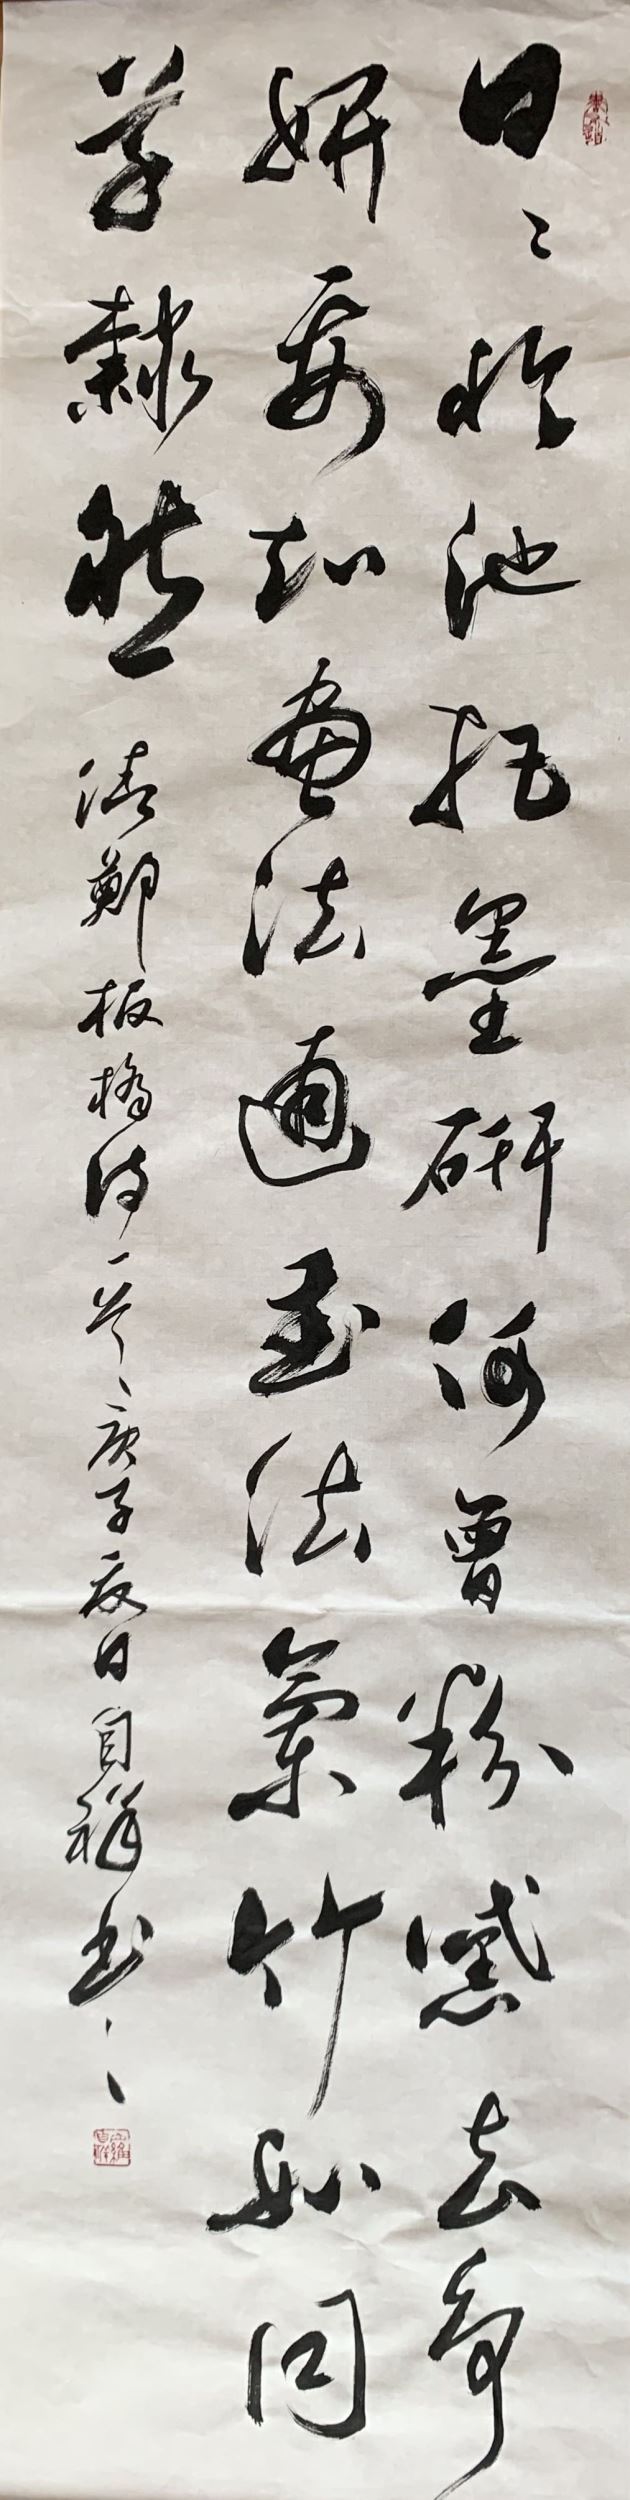 日〻临池把墨研何曾粉黛去争
妍要知画法通书法兰竹如同
草隶然 清郑板桥诗一首庚子夏日自祥书